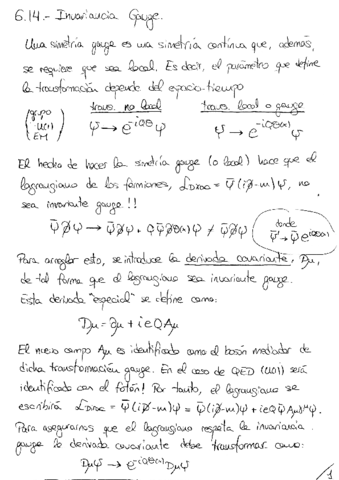 6.14.- Invariancia Gauge.
Una simetría gauge es una simetría continua que, además,
se requiere que sea local. Es decir, el parámetro que define
la transformación depende del espacio-tiempo
trans. no local trans. local o gauge
(grupo U(1) EM) Ψ → e^{-iQθ} Ψ Ψ → e^{-iQθ(x)} Ψ
El hecho de hacer la simetría gauge (o local) hace que el
lagrangiano de los fermiones, ℒ_Dirac = Ψ̄(i∂̸-m)Ψ, no
sea invariante gauge!!
Ψ̄∂̸Ψ → Ψ̄∂̸Ψ + QΨ̄∂̸θ(x)Ψ ≠ Ψ̄∂̸Ψ
donde
Ψ̄ → Ψ̄ e^{iQθ(x)}
Para arreglar esto, se introduce la derivada covariante, Dμ,
de tal forma que el lagrangiano sea invariante gauge.
Esta derivada "especial" se define como:
Dμ = ∂μ + ieQAμ
El nuevo campo Aμ es identificado como el bosón mediador de
dicha transformación gauge. En el caso de QED (U(1)) será
identificado con el fotón! Por tanto, el lagrangiano se
escribirá ℒ_Dirac = Ψ̄(iD̸-m)Ψ = Ψ̄(i∂̸-m)Ψ + ieQΨ̄AμγμΨ.
Para asegurarnos que el lagrangiano respeta la invariancia
gauge la derivada covariante debe transformar como:
DμΨ → e^{-iQθ(x)} DμΨ
1